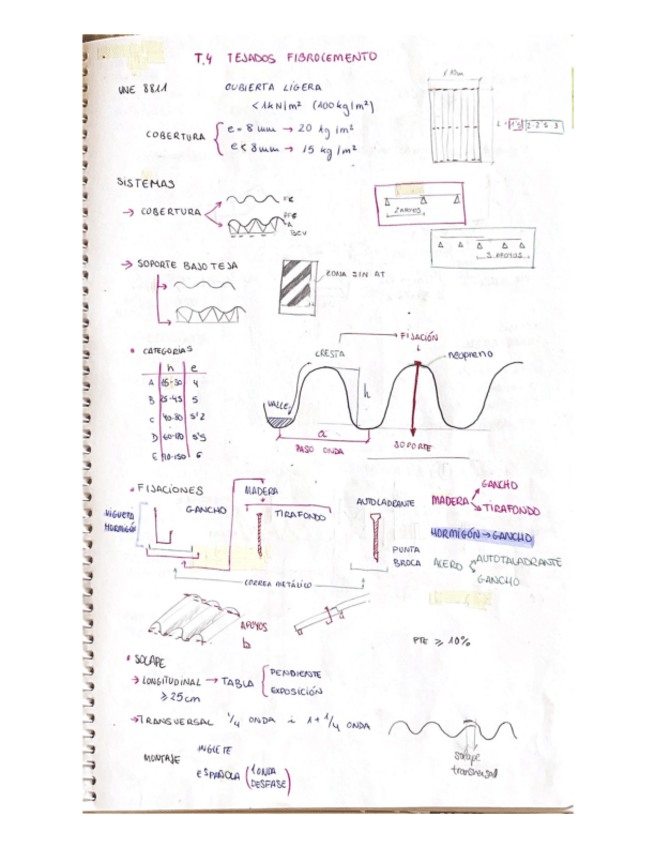 T.4 TEJADOS FIBROCEMENTO
UNE 8811
CUBIERTA LIGERA
< 1kN/m² (100kg/m²)
COBERTURA
e = 8 mm → 20 kg/m²
e < 8mm → 15 kg/m²
SISTEMAS
→ COBERTURA
FC
2 APOYOS
3 APOYOS
→ SOPORTE BAJO TEJA
ZONA SIN AT
• CATEGORIAS
h e
A 15-30 4
B 25-45 5
C 40-80 5'2
D 60-120 5'5
E 110-150 6
FIJACIÓN
CRESTA
neopreno
h
VALLE
a
PASO ONDA
SOPORTE
• FIJACIONES
VIGUETA HORMIGÓN
GANCHO
MADERA
TIRAFONDO
AUTOTALADRANTE
PUNTA BROCA
CORREA METÁLICO
MADERA
GANCHO
TIRAFONDO
HORMIGÓN → GANCHO
ACERO
AUTOTALADRANTE
GANCHO
APOYOS
b
a
PTE ≥ 10%
• SOLAPE
→ LONGITUDINAL → TABLA
PENDIENTE
EXPOSICIÓN
≥ 25cm
→ TRANSVERSAL 1/4 ONDA i 1 + 1/4 ONDA
solape
transversal
MONTAJE
INGLETE
ESPAÑOLA (1 ONDA DESFASE)